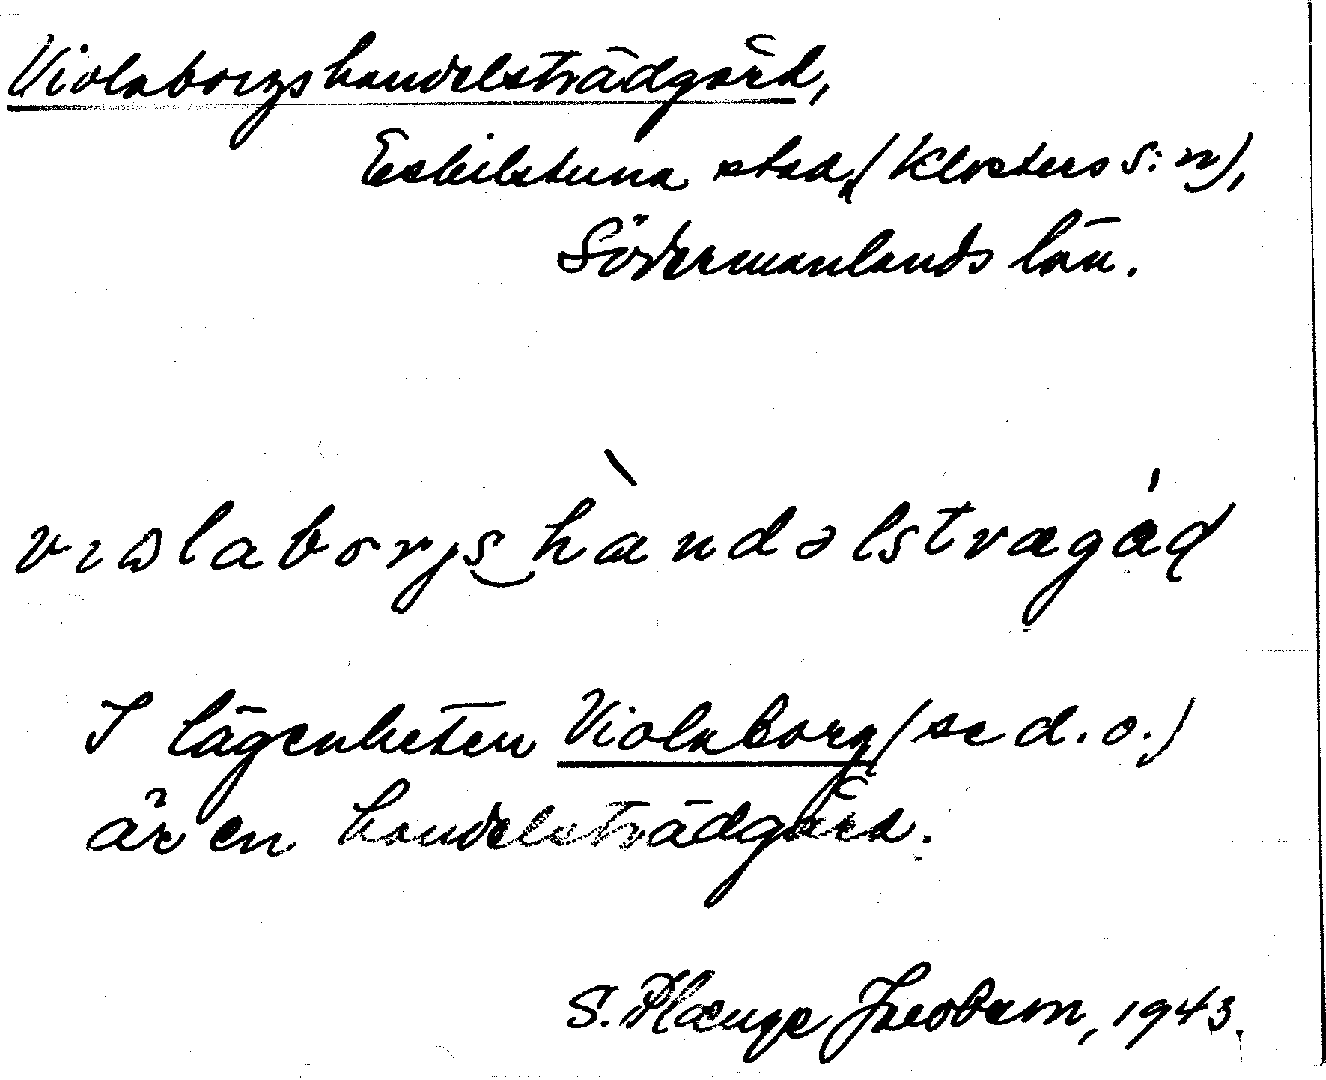 Violaborgs handelsträdgård,
Eskilstuna stad, (Klosters s:n),
Södermanlands län.
vıωlaborjs‿hàndəlstrægǻḍ
I lägenheten Violaborg (se d. o.)
är en handelsträdgård.
S. Plænge Jacobson, 1943.